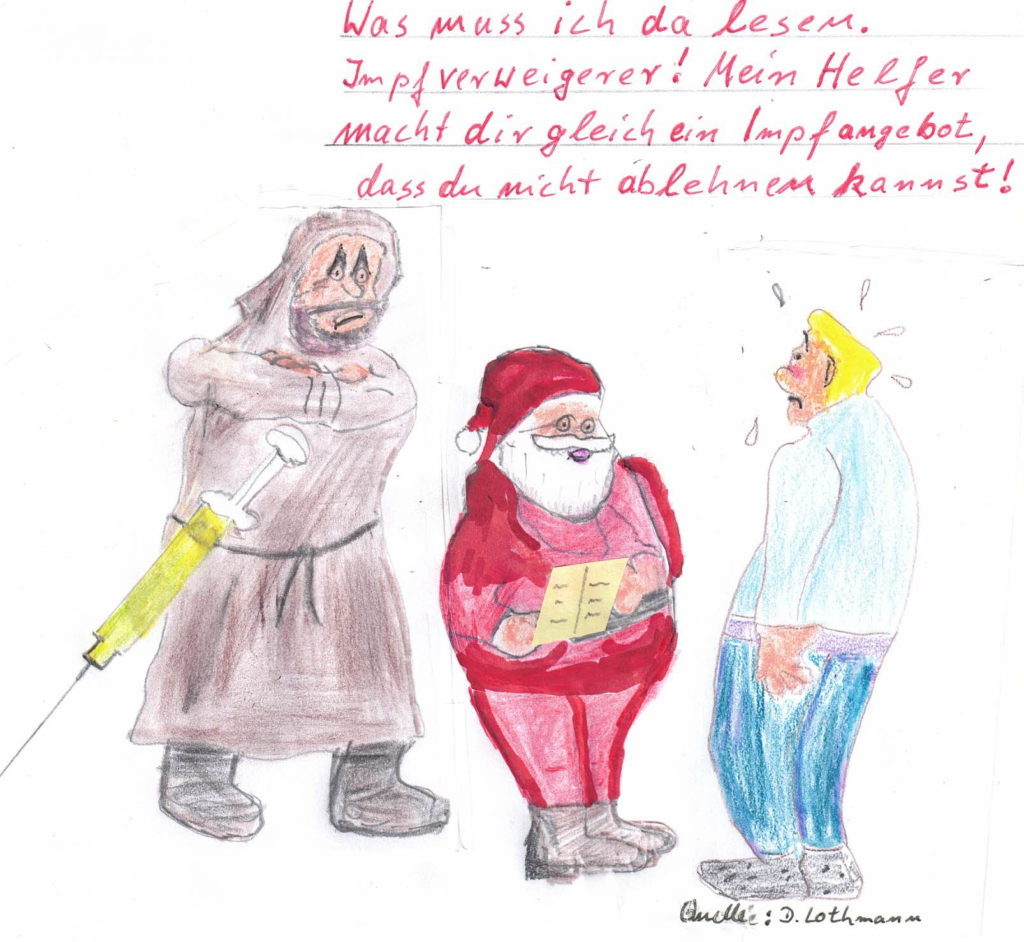 Was muss ich da lesen.
Impfverweigerer! Mein Helfer
macht dir gleich ein Impfangebot,
dass du nicht ablehnen kannst!
Quelle: D. Lothmann